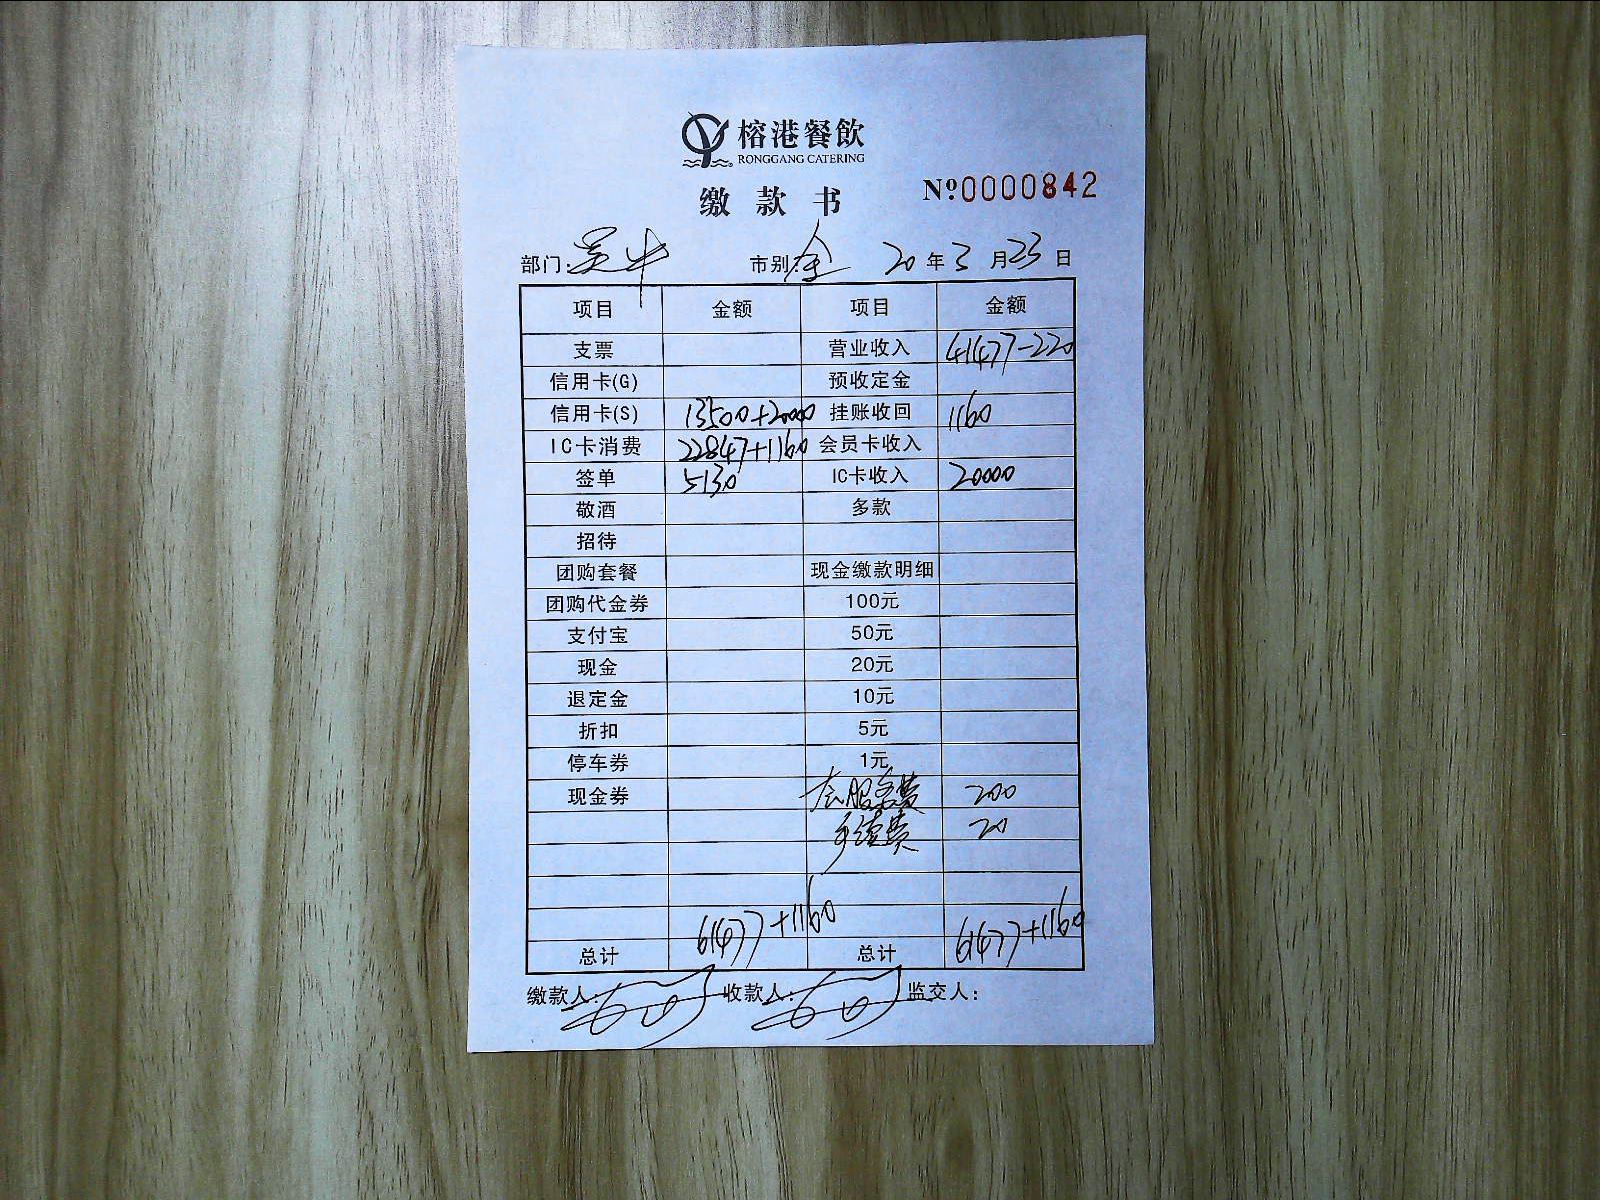 榕港餐飲
RONGGANG CATERING
缴款书 Nº0000842
部门: 吴中 市别: 全 20年3月23日
项目 金额 项目 金额
支票 营业收入 41477-220
信用卡(G) 预收定金
信用卡(S) 13500+20000 挂账收回 1160
IC卡消费 22847+1160 会员卡收入
签单 5130 IC卡收入 20000
敬酒 多款
招待
团购套餐 现金缴款明细
团购代金券 100元
支付宝 50元
现金 20元
退定金 10元
折扣 5元
停车券 1元
现金券 200
手续费 20
总计 61477+1160 总计 61477+1160
缴款人: 收款人: 监交人: